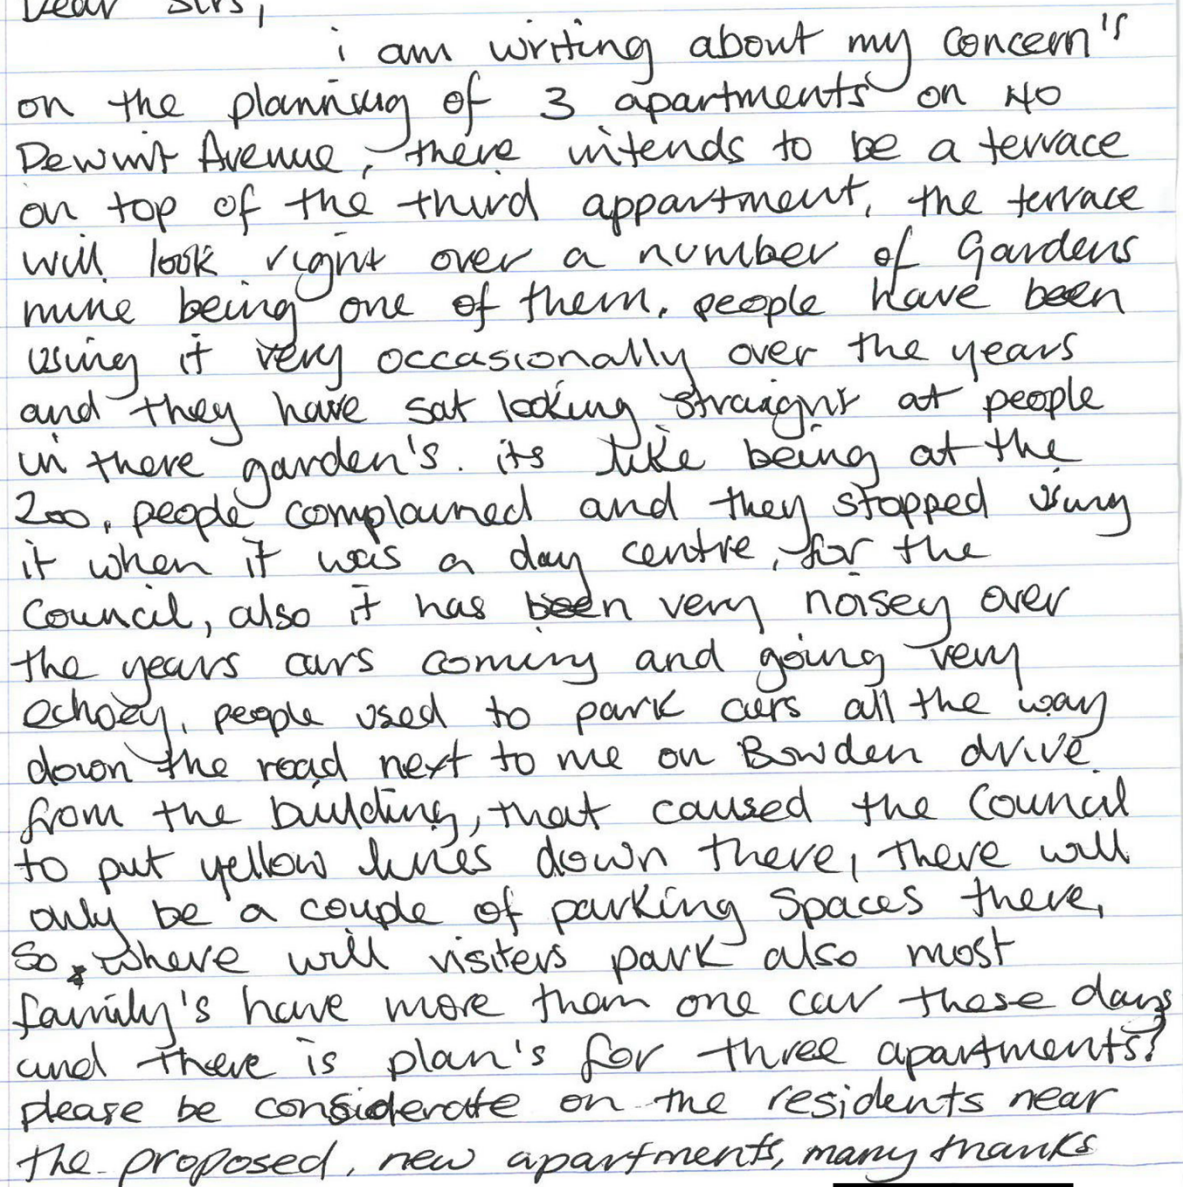 Dear Sirs,
i am writing about my concern's
on the planning of 3 apartments on 40
Dewint Avenue, there intends to be a terrace
on top of the third appartment, the terrace
will look right over a number of Gardens
mine being one of them. people have been
using it very occasionally over the years
and they have sat looking straight at people
in there garden's. its like being at the
Zoo, people complained and they stopped using
it when it was a day centre, for the
Council, also it has been very noisey over
the years cars coming and going very
echoey, people used to park cars all the way
down the road next to me on Bowden drive
from the building, that caused the Council
to put yellow lines down there, there will
only be a couple of parking Spaces there,
So, where will visiters park also most
family's have more them one car these days
and there is plan's for three apartments?
please be considerate on the residents near
the proposed, new apartments, many thanks